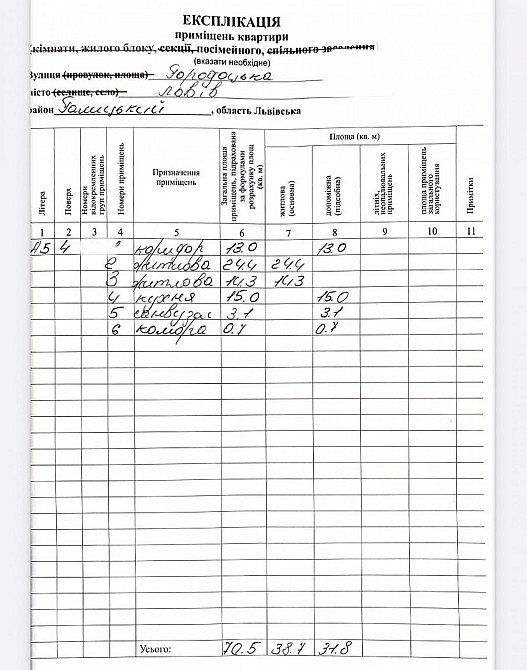 ЕКСПЛІКАЦІЯ
приміщень квартири
(кімнати, жилого блоку, секції, посімейного, спільного заселення
(вказати необхідне)
Вулиця (провулок, площа) Городоцька
місто (селище, село) Львів
район Галицький, область Львівська
Літера Поверх Номери відокремлених груп приміщень Номери приміщень Призначення приміщень Загальна площа приміщень, підрахована за формулами розрахунку площ (кв. м) Площа (кв. м) житлова (основна) допоміжна (підсобна) літніх, неопалювальних приміщень площа приміщень загального користування Примітки
1 2 3 4 5 6 7 8 9 10 11
4 коридор 13.0 13.0
2 житлова 24.4 24.4
3 житлова 14.3 14.3
4 кухня 15.0 15.0
5 санвузол 3.1 3.1
6 комора 0.7 0.7
Усього: 70.5 38.7 31.8